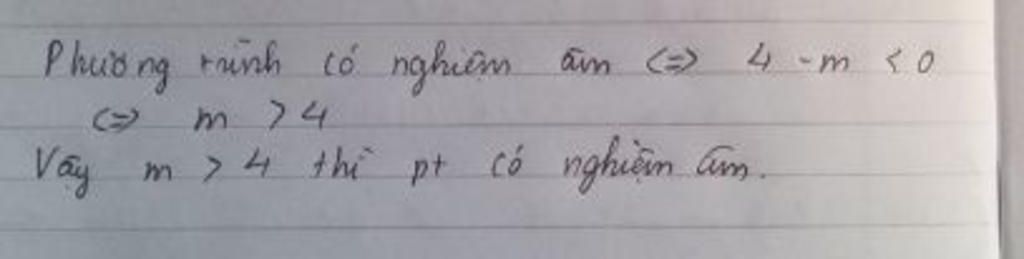 Phương trình có nghiệm âm <=> 4 - m < 0
<=> m > 4
Vậy m > 4 thì pt có nghiệm âm.